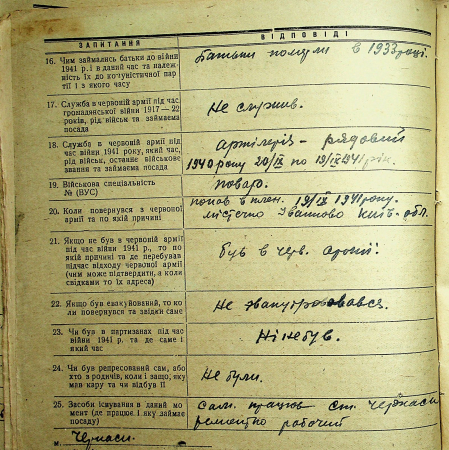 ЗАПИТАННЯ
ВІДПОВІДІ
16. Чим займались батьки до війни
1941 р. і в даний час та належ-
ність їх до комуністичної пар-
тії і з якого часу
Батьки помули в 1933 році.
17. Служба в червоній армії під час
громадянської війни 1917—22
роках, рід військ та займаєма
посада
Не служив.
18. Служба в червоній армії під
час війни 1941 року, який час,
рід військ, останнє військове
звання та займаєма посада
артілерія – рядовий
1940 року 20/IX по 19/IX 1941 рік.
19. Військова спеціальність
№ (ВУС)
повар.
20. Коли повернувся з червоної
армії та по якій причині
попав в плен. 19/IX 1941 року.
містечко Іванково Київ. обл.
21. Якщо не був в червоній армії
під час війни 1941 р., то по
якій причині та де перебував
підчас відходу червоної армії
(чим може підтвердити, а коли
свідками то їх адреса)
був в черв. армії!
22. Якщо був евакуйований, то ко-
ли повернувся та звідки саме
Не эвакуіровався.
23. Чи був в партизанах під час
війни 1941 р. та де саме і
який час
Ні не був.
24. Чи був репресований сам, або
хто з родичів, коли і защо, яку
мав кару та чи відбув її
Не були.
25. Засоби існування в даний мо-
мент (де працює і яку займає
посаду)
сам. працюв ст. Черкаси
ремонтно рабочий
м. Черкаси.